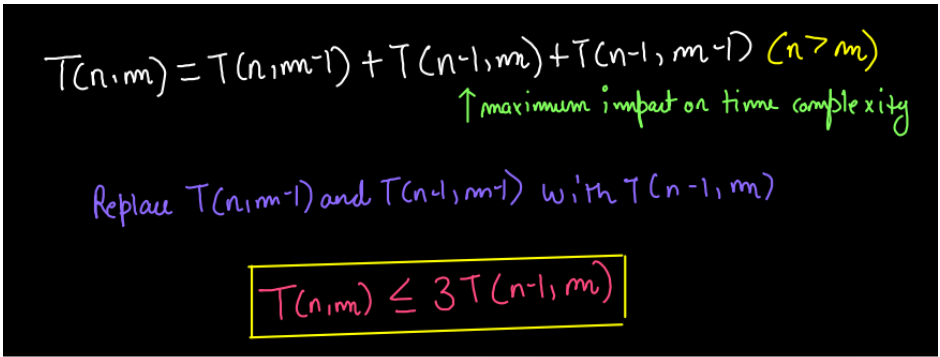 T(n,m) = T(n,m-1) + T(n-1,m) + T(n-1, m-1) (n>m)
↑ maximum impact on time complexity
Replace T(n,m-1) and T(n-1,m-1) with T(n-1, m)
T(n,m) ≤ 3T(n-1, m)